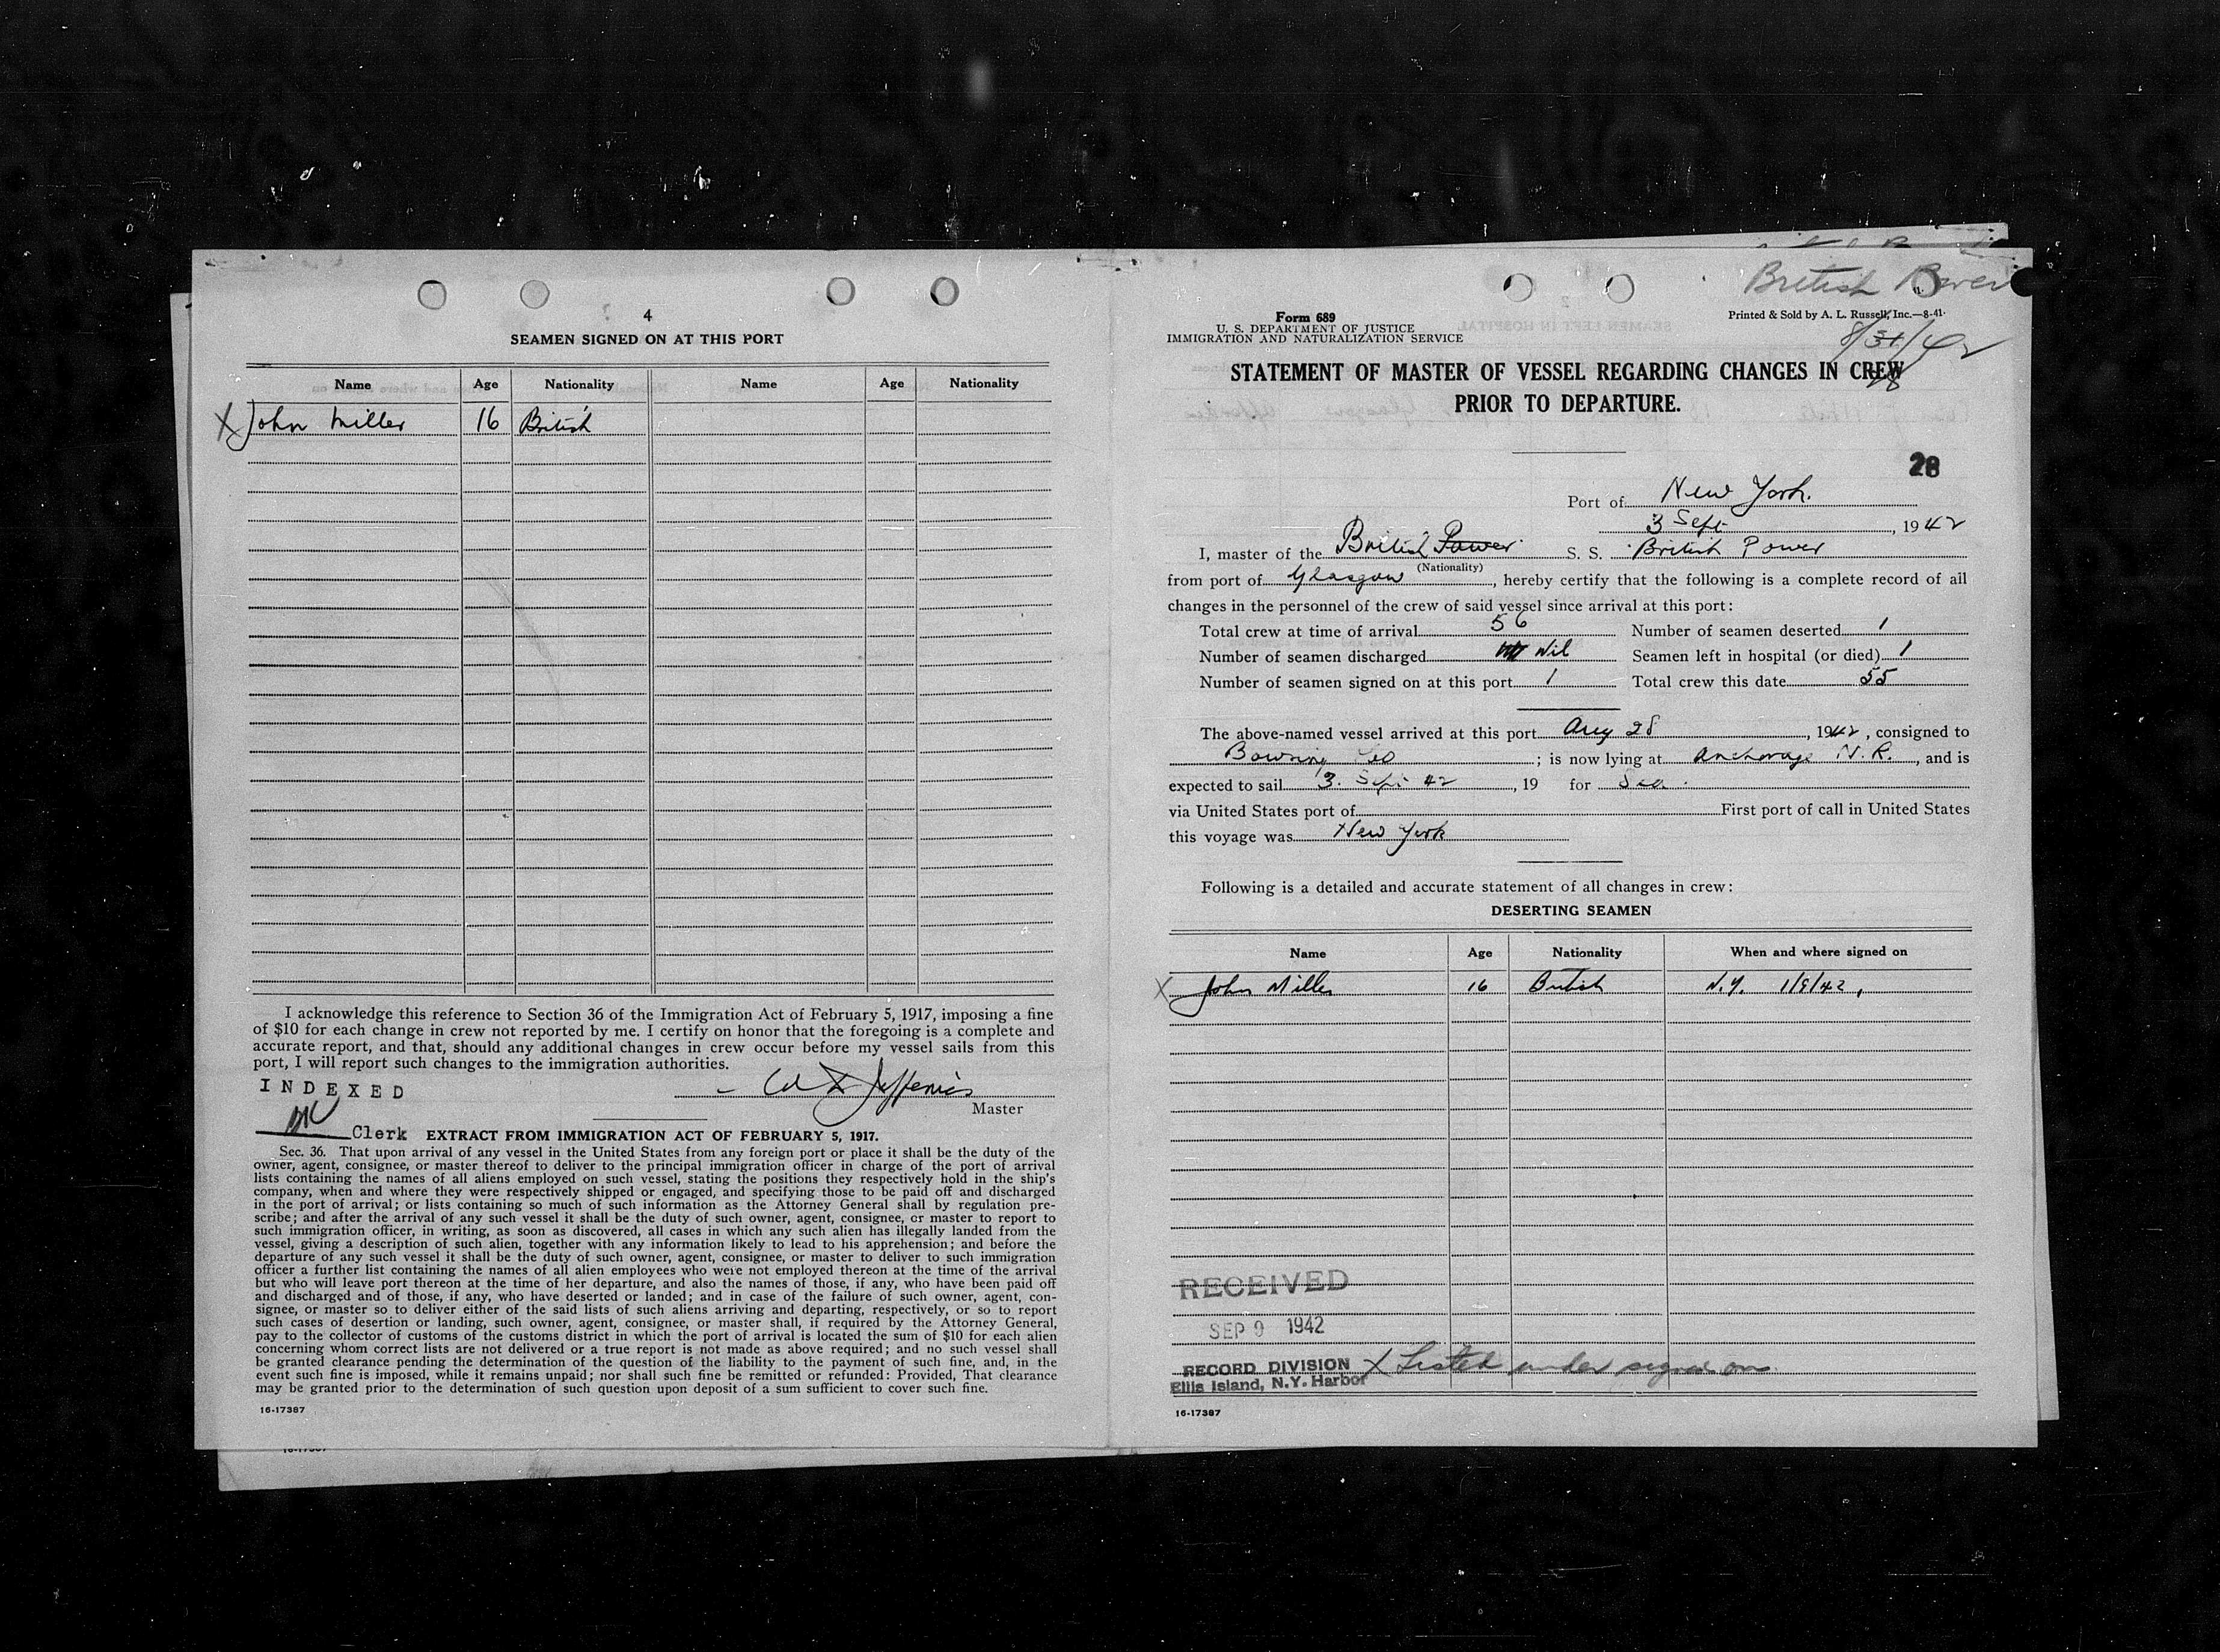 4
SEAMEN SIGNED ON AT THIS PORT
Name Age Nationality Name Age Nationality
X John Miller 16 British
I acknowledge this reference to Section 36 of the Immigration Act of February 5, 1917, imposing a fine
of $10 for each change in crew not reported by me. I certify on honor that the foregoing is a complete and
accurate report, and that, should any additional changes in crew occur before my vessel sails from this
port, I will report such changes to the immigration authorities.
INDEXED
Jefferies
Master
Clerk EXTRACT FROM IMMIGRATION ACT OF FEBRUARY 5, 1917.
Sec. 36. That upon arrival of any vessel in the United States from any foreign port or place it shall be the duty of the
owner, agent, consignee, or master thereof to deliver to the principal immigration officer in charge of the port of arrival
lists containing the names of all aliens employed on such vessel, stating the positions they respectively hold in the ship's
company, when and where they were respectively shipped or engaged, and specifying those to be paid off and discharged
in the port of arrival; or lists containing so much of such information as the Attorney General shall by regulation pre-
scribe; and after the arrival of any such vessel it shall be the duty of such owner, agent, consignee, or master to report to
such immigration officer, in writing, as soon as discovered, all cases in which any such alien has illegally landed from the
vessel, giving a description of such alien, together with any information likely to lead to his apprehension; and before the
departure of any such vessel it shall be the duty of such owner, agent, consignee, or master to deliver to such immigration
officer a further list containing the names of all alien employees who were not employed thereon at the time of the arrival
but who will leave port thereon at the time of her departure, and also the names of those, if any, who have been paid off
and discharged and of those, if any, who have deserted or landed; and in case of the failure of such owner, agent, con-
signee, or master so to deliver either of the said lists of such aliens arriving and departing, respectively, or so to report
such cases of desertion or landing, such owner, agent, consignee, or master shall, if required by the Attorney General,
pay to the collector of customs of the customs district in which the port of arrival is located the sum of $10 for each alien
concerning whom correct lists are not delivered or a true report is not made as above required; and no such vessel shall
be granted clearance pending the determination of the question of the liability to the payment of such fine, and, in the
event such fine is imposed, while it remains unpaid; nor shall such fine be remitted or refunded: Provided, That clearance
may be granted prior to the determination of such question upon deposit of a sum sufficient to cover such fine.
16-17387
British Power
Form 689
U. S. DEPARTMENT OF JUSTICE
IMMIGRATION AND NATURALIZATION SERVICE
Printed & Sold by A. L. Russell, Inc.—8-41.
8/31/42
28
STATEMENT OF MASTER OF VESSEL REGARDING CHANGES IN CREW
PRIOR TO DEPARTURE.
28
Port of New York.
3 Sept. , 1942
I, master of the British Power S. S. British Power
(Nationality)
from port of Glasgow , hereby certify that the following is a complete record of all
changes in the personnel of the crew of said vessel since arrival at this port:
Total crew at time of arrival 56 Number of seamen deserted 1
Number of seamen discharged Nil Seamen left in hospital (or died) 1
Number of seamen signed on at this port 1 Total crew this date 55
The above-named vessel arrived at this port Aug 28 , 1942 , consigned to
Bowring Co ; is now lying at Anchorage N. R. , and is
expected to sail 3. Sept 42 , 19 for Sea.
via United States port of First port of call in United States
this voyage was New York
Following is a detailed and accurate statement of all changes in crew:
DESERTING SEAMEN
Name Age Nationality When and where signed on
X John Miller 16 British N.Y. 1/9/42,
RECEIVED
SEP 9 1942
RECORD DIVISION X Listed under signed ons
Ellis Island, N.Y. Harbor
16-17387